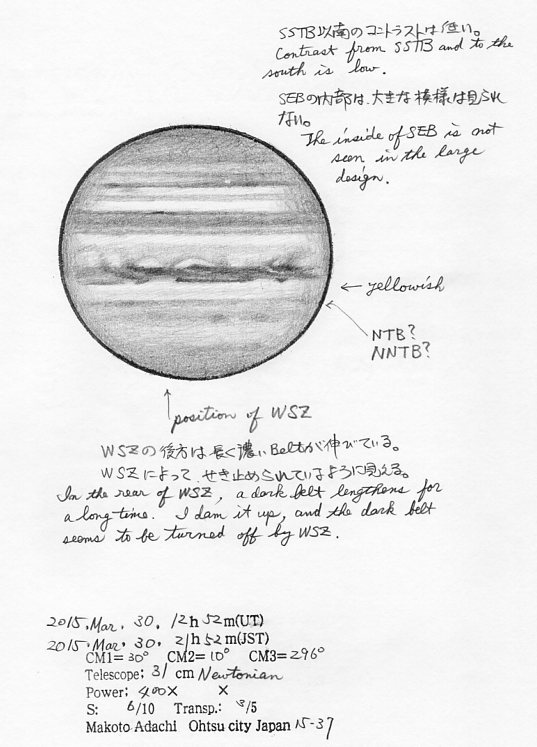 SSTB以南のコントラストは低い。
Contrast from SSTB and to the
south is low.
SEBの内部は、大きな模様は見られ
ない。
The inside of SEB is not
seen in the large
design.
← yellowish
NTB?
NNTB?
position of WSZ
WSZの後方は長く濃いBeltが伸びている。
WSZによって、せき止められているように見える。
In the rear of WSZ, a dark belt lengthens for
a long time. I dam it up, and the dark belt
seems to be turned off by WSZ.
2015.Mar. 30. 12h 52m(UT)
2015.Mar. 30. 21h 52m(JST)
CM1= 30° CM2= 10° CM3= 296°
Telescope; 31 cm Newtonian
Power; 400× ×
S: 6/10 Transp.: /5
Makoto Adachi Ohtsu city Japan 15-37